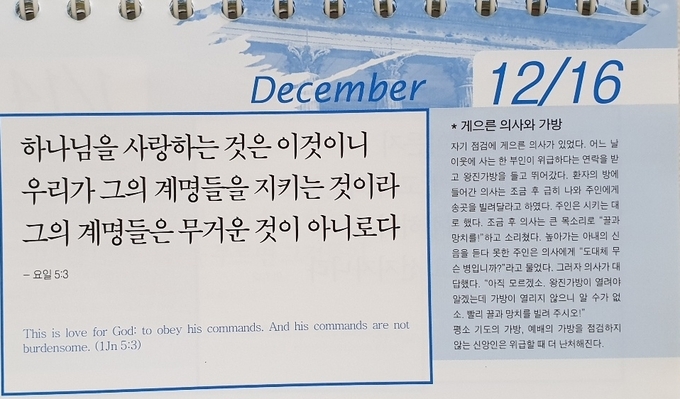 December
12/16
하나님을 사랑하는 것은 이것이니
우리가 그의 계명들을 지키는 것이라
그의 계명들은 무거운 것이 아니로다
- 요일 5:3
This is love for God: to obey his commands. And his commands are not
burdensome. (1Jn 5:3)
★ 게으른 의사와 가방
자기 점검에 게으른 의사가 있었다. 어느 날
이웃에 사는 한 부인이 위급하다는 연락을 받
고 왕진가방을 들고 뛰어갔다. 환자의 방에
들어간 의사는 조금 후 급히 나와 주인에게
송곳을 빌려달라고 하였다. 주인은 시키는 대
로 했다. 조금 후 의사는 큰 목소리로 "끌과
망치를!"하고 소리쳤다. 높아가는 아내의 신
음을 듣다 못한 주인은 의사에게 "도대체 무
슨 병입니까?"라고 물었다. 그러자 의사가 대
답했다. "아직 모르겠소. 왕진가방이 열려야
알겠는데 가방이 열리지 않으니 알 수가 없
소. 빨리 끌과 망치를 빌려 주시오!"
평소 기도의 가방, 예배의 가방을 점검하지
않는 신앙인은 위급할 때 더 난처해진다.